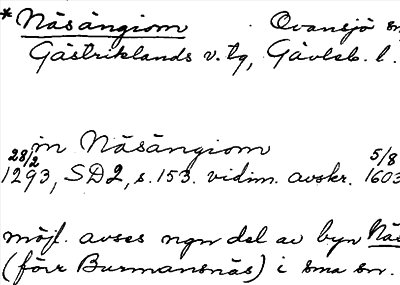 *Näsängiom Ovansjö sn
Gästriklands v. tg, Gävleb. l.
in Näsängiom
28/2 1293, SD2, s. 153. vidim. avskr. 5/8 1603
möjl. avses ngn del av byn Näs
(förr Burmansnäs) i sma sn.